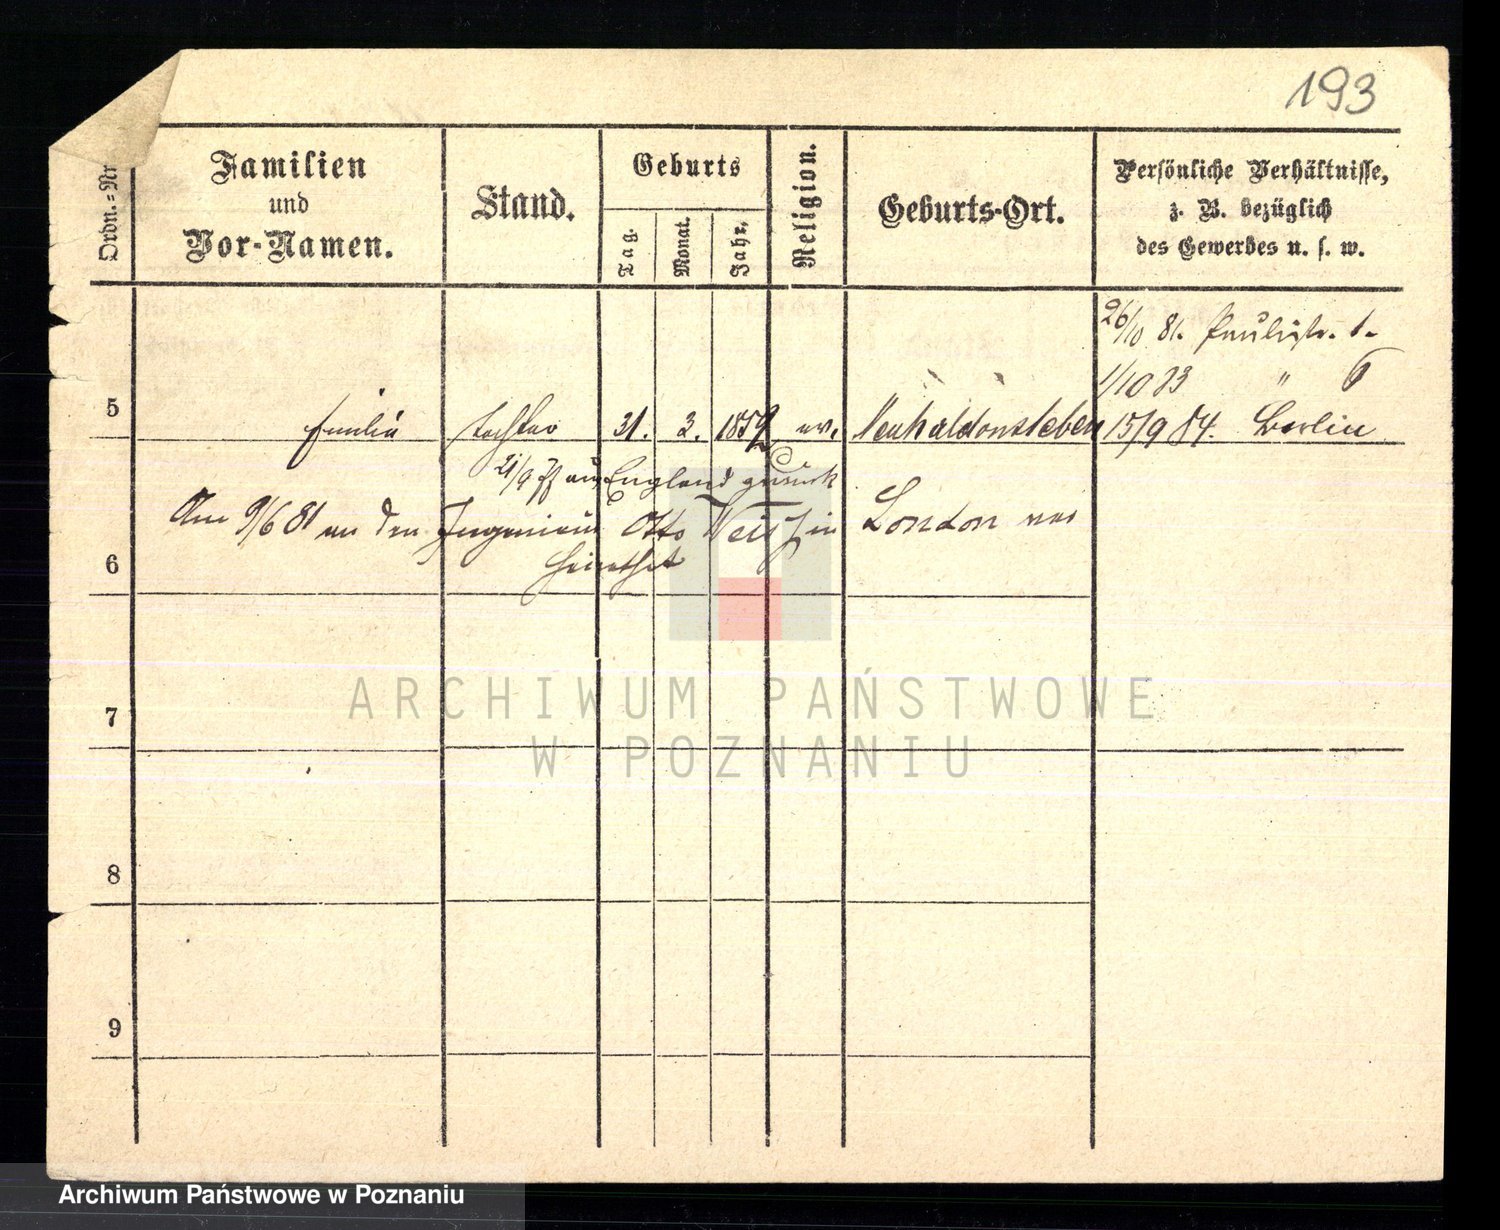 193
Ordn.=Nr
Familien
und
Vor-Namen.
Stand.
Geburts
Tag.
Monat.
Jahr.
Religion.
Geburts-Ort.
Persönliche Verhältnisse,
z. B. bezüglich
des Gewerbes u. s. w.
26/10 81. Paulistr. 1.
1/10 83 " 6
5 Emilie Tochter 31. 3. 1859 ev. Neuhaldensleben 15/9 84. Berlin
21/9 aus England zurück
Am 9/6 81 an den Ingenieur Otto Weiß in London ver
heirathet
6
7
8
9
ARCHIWUM PAŃSTWOWE
W POZNANIU
Archiwum Państwowe w Poznaniu